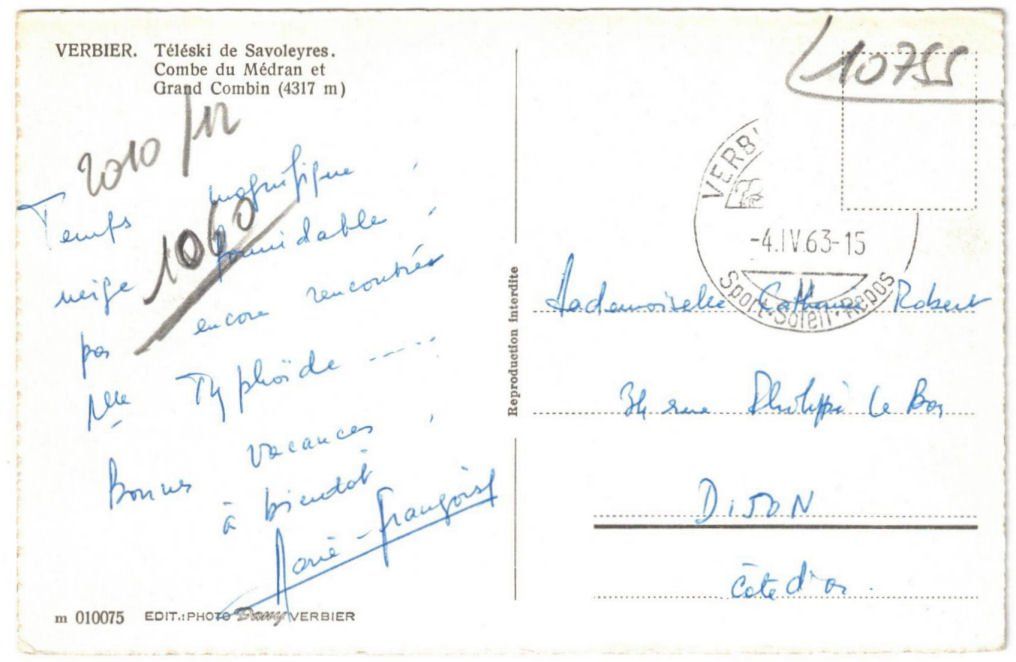 VERBIER. Téléski de Savoleyres.
Combe du Médran et
Grand Combin (4317 m)
2010/12
10755
Temps magnifique,
neige formidable,
1060
pas encore rencontrée
Mlle Typhoïde -----
Bonnes vacances,
à bientôt
Marie-Françoise
m 010075 EDIT.: PHOTO VERBIER
Reproduction interdite
VERB
-4.IV 63-15
Sport-Soleil-Repos
Mademoiselle Robert
34 rue Philippe Le Bon
DIJON
Côte d'or.